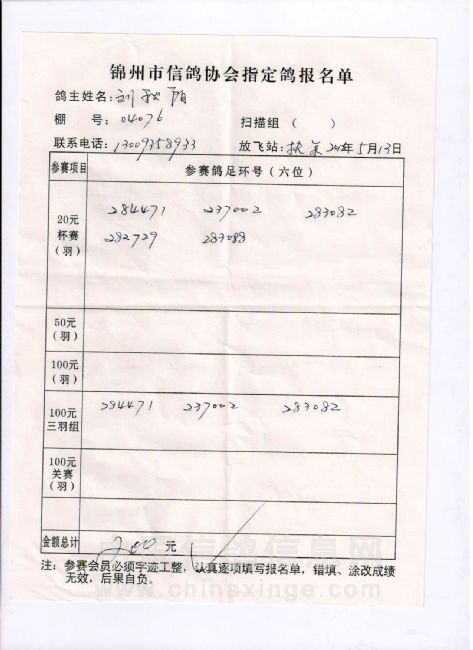 锦州市信鸽协会指定鸽报名单
鸽主姓名：刘
棚 号：04076 扫描组 （ ）
联系电话：13009358933 放飞站： 年5月13日
参赛项目 参赛鸽足环号（六位）
20元
杯赛
（羽）
284471 237002 283082
282729 283088
50元
（羽）
100元
（羽）
100元
三羽组
284471 237002 283082
100元
关赛
（羽）
金额总计 200元
注：参赛会员必须字迹工整，认真逐项填写报名单，错填、涂改成绩
无效，后果自负。
www.chinaxinge.com